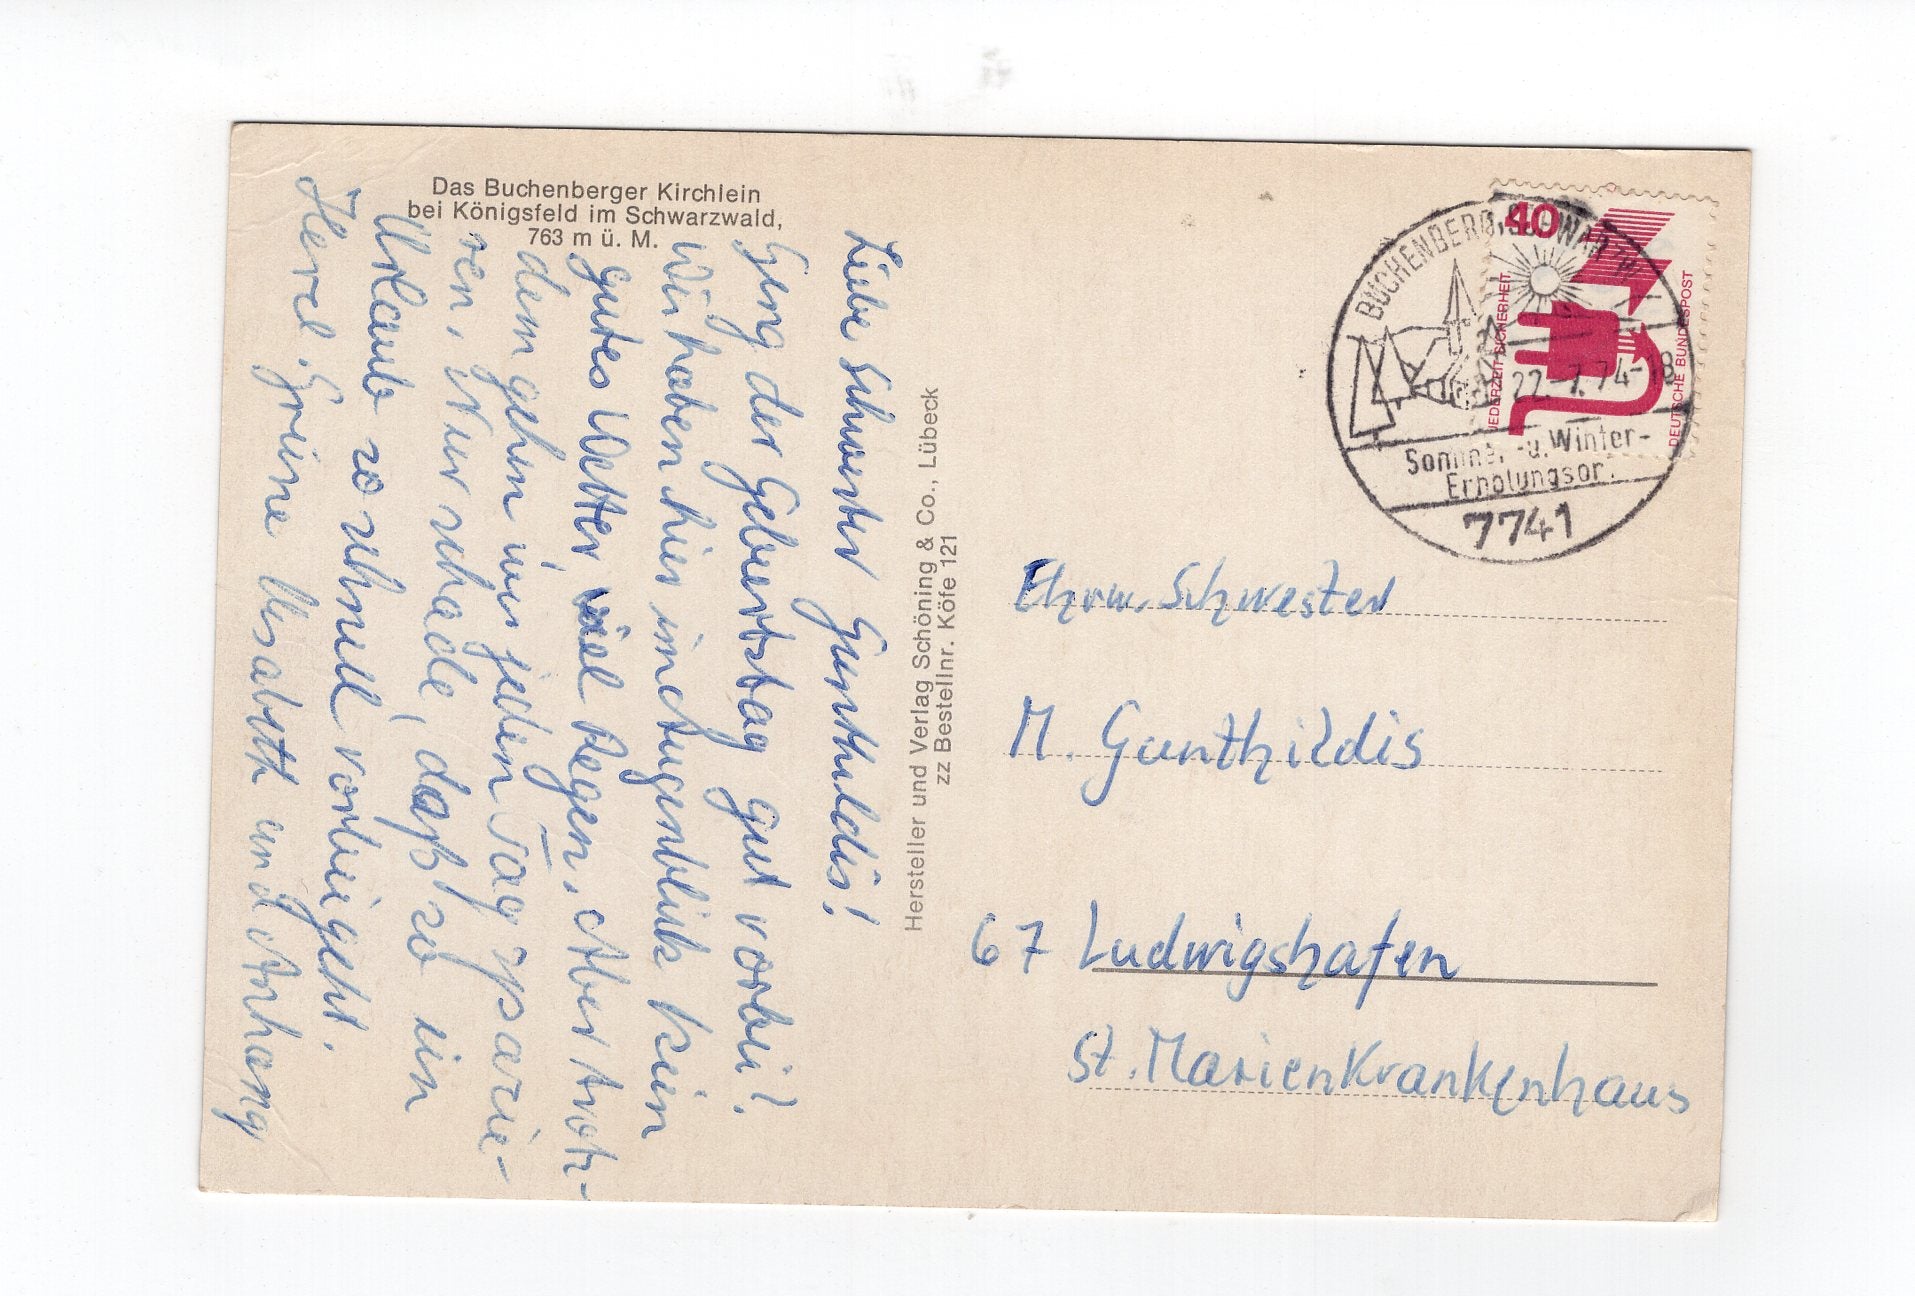 Das Buchenberger Kirchlein
bei Königsfeld im Schwarzwald,
763 m ü. M.
Liebe Schwester Gunthildis!
Ging der Geburtstag gut vorbei?
Wir haben hier im Augenblick kein
gutes Wetter, viel Regen. Aber trotz-
dem gehen wir jeden Tag spazie-
ren. Nur schade, daß so ein
Urlaub so schnell vorbeigeht.
Herzl. Grüße Elisabeth und Anhang
Hersteller und Verlag Schöning & Co., Lübeck
zz Bestellnr. Köfe 121
40
JEDERZEIT SICHERHEIT
DEUTSCHE BUNDESPOST
BUCHENBERG, SCHWARZW
22.-7.74-18
Sommer- u. Winter-
Erholungsort
7741
Ehrw. Schwester
M. Gunthildis
67 Ludwigshafen
St. Marienkrankenhaus